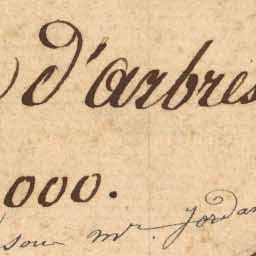 d'arbres
000.
sous mr. Jordan